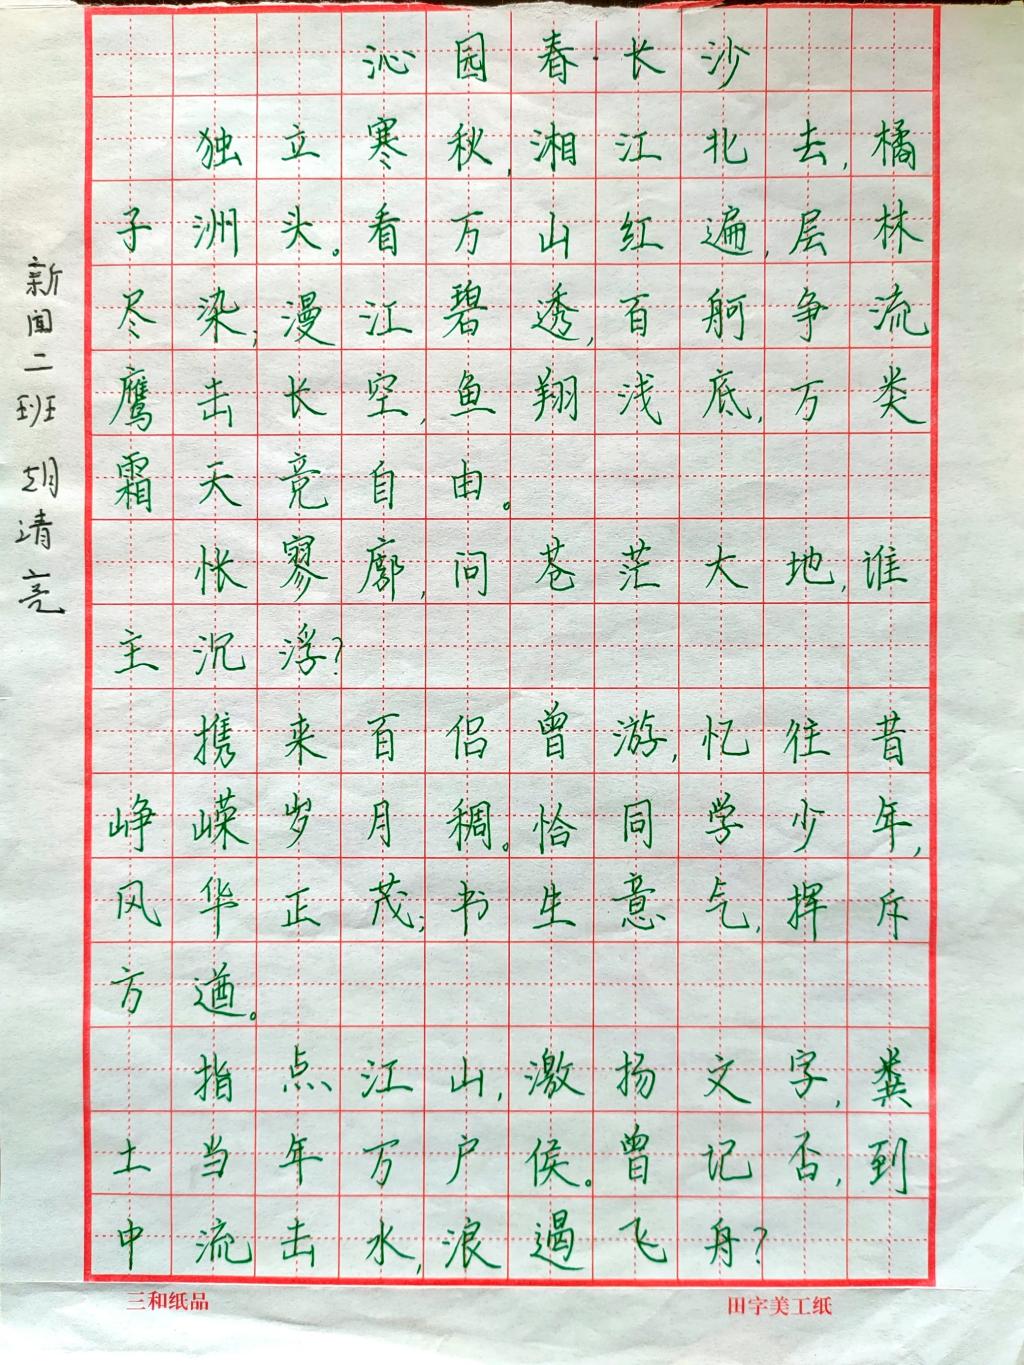 沁园春·长沙
独立寒秋,湘江北去,橘
子洲头。看万山红遍,层林
尽染;漫江碧透,百舸争流
鹰击长空,鱼翔浅底,万类
霜天竞自由。
怅寥廓,问苍茫大地,谁
主沉浮?
携来百侣曾游,忆往昔
峥嵘岁月稠。恰同学少年,
风华正茂;书生意气,挥斥
方遒。
指点江山,激扬文字,粪
土当年万户侯。曾记否,到
中流击水,浪遏飞舟?
新闻二班 胡靖亮
三和纸品
田字美工纸